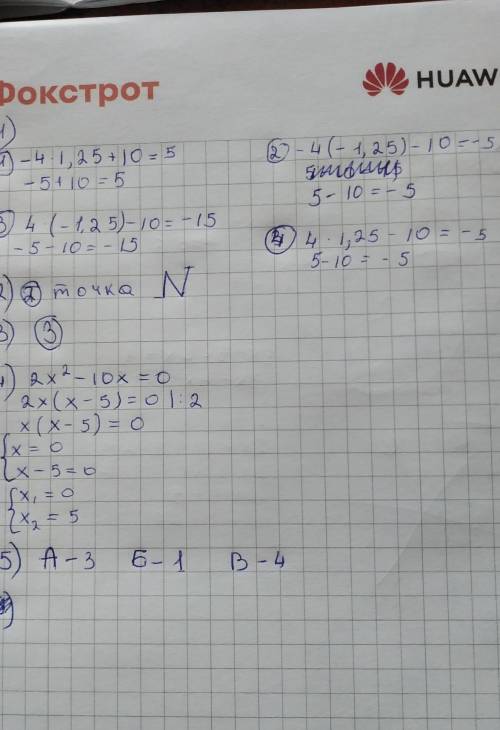 Фокстрот
HUAW
1)
1) -4·1,25+10=5
-5+10=5
2) -4(-1,25)-10=-5
5-10=-5
3) 4(-1,25)-10=-15
-5-10=-15
4) 4·1,25-10=-5
5-10=-5
2) 2 точка N
3) 3
4) 2x²-10x=0
2x(x-5)=0 |:2
x(x-5)=0
{x=0
{x-5=0
{x₁=0
{x₂=5
5) А-3 Б-1 В-4